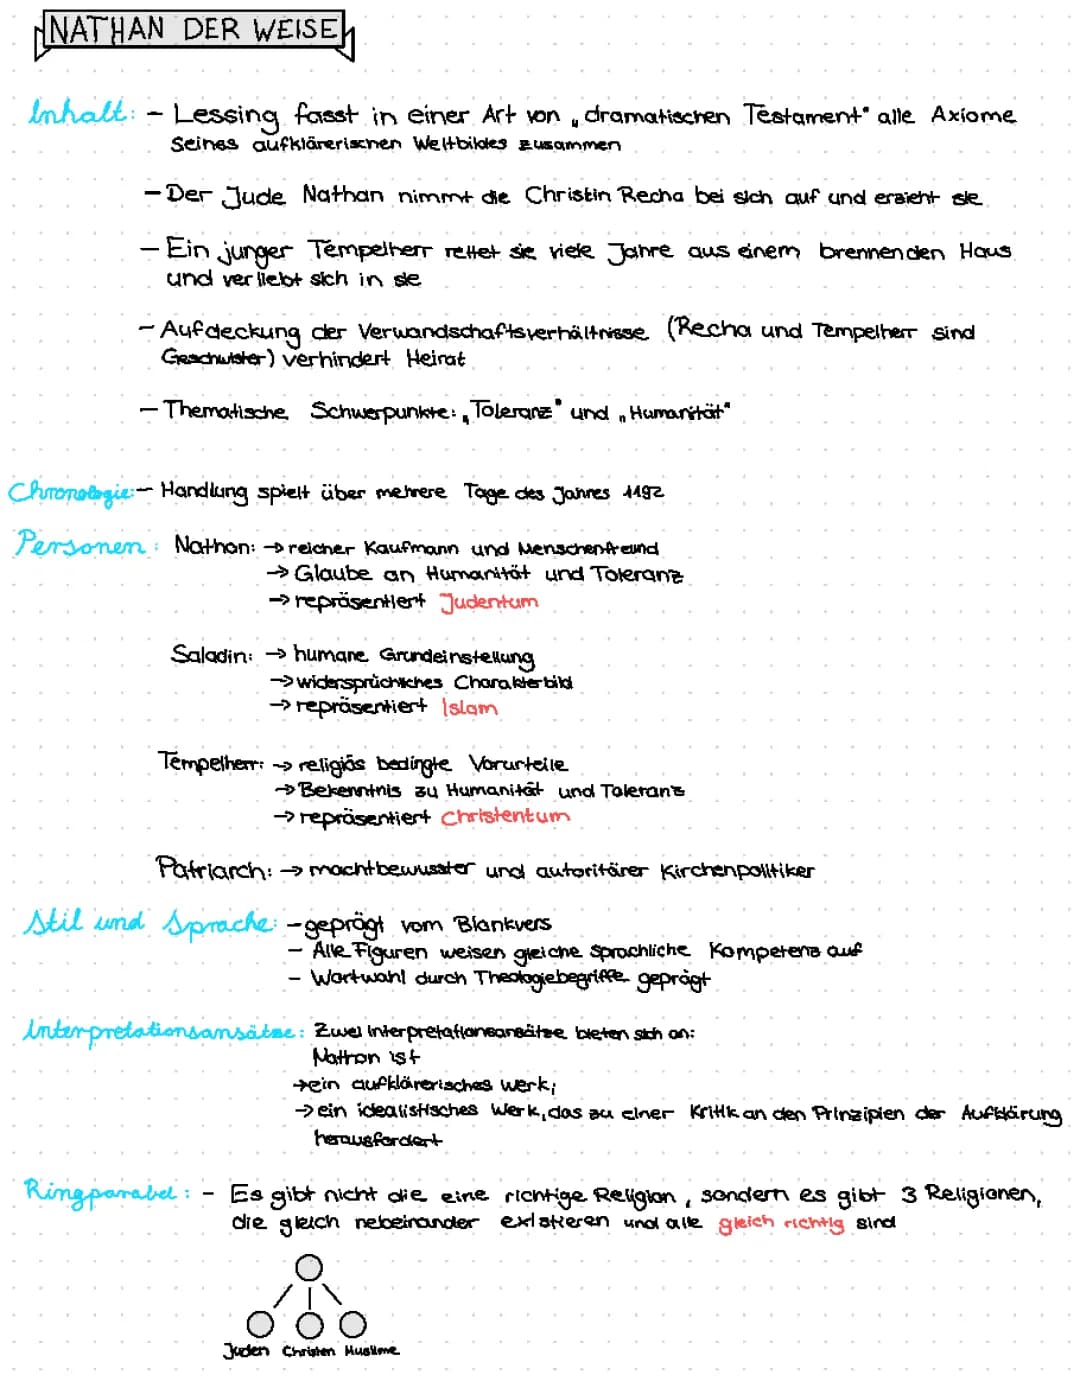 NATHAN DER WEISE
Inhalt: - Lessing fasst in einer Art von „dramatischen Testament" alle Axiome
Seines aufklärerischen Weltbildes zusammen
- Der Jude Nathan nimmt die Christin Recha bei sich auf und erzieht sie
- Ein junger Tempelherr rettet sie viele Jahre aus einem brennenden Haus
und verliebt sich in sie
- Aufdeckung der Verwandschaftsverhältnisse (Recha und Tempelherr sind
Geschwister) verhindert Heirat
- Thematische Schwerpunkte: „Toleranz" und „Humanität"
Chronologie: - Handlung spielt über mehrere Tage des Jahres 1192
Personen: Nathan: → reicher Kaufmann und Menschenfreund
→ Glaube an Humanität und Toleranz
→ repräsentiert Judentum
Saladin: → humane Grundeinstellung
→ widersprüchliches Charakterbild
→ repräsentiert Islam
Tempelherr: → religiös bedingte Vorurteile
→ Bekenntnis zu Humanität und Toleranz
→ repräsentiert Christentum
Patriarch: → machtbewusster und autoritärer Kirchenpolitiker
Stil und Sprache: - geprägt vom Blankvers
- Alle Figuren weisen gleiche sprachliche Kompetenz auf
- Wortwahl durch Theologiebegriffe geprägt
Interpretationsansätze: Zwei Interpretationsansätze bieten sich an:
Nathan ist
→ ein aufklärerisches Werk;
→ ein idealistisches Werk, das zu einer Kritik an den Prinzipien der Aufklärung
herausfordert
Ringparabel: - Es gibt nicht die eine richtige Religion, sondern es gibt 3 Religionen,
die gleich nebeinander existieren und alle gleich richtig sind
Juden Christen Muslime